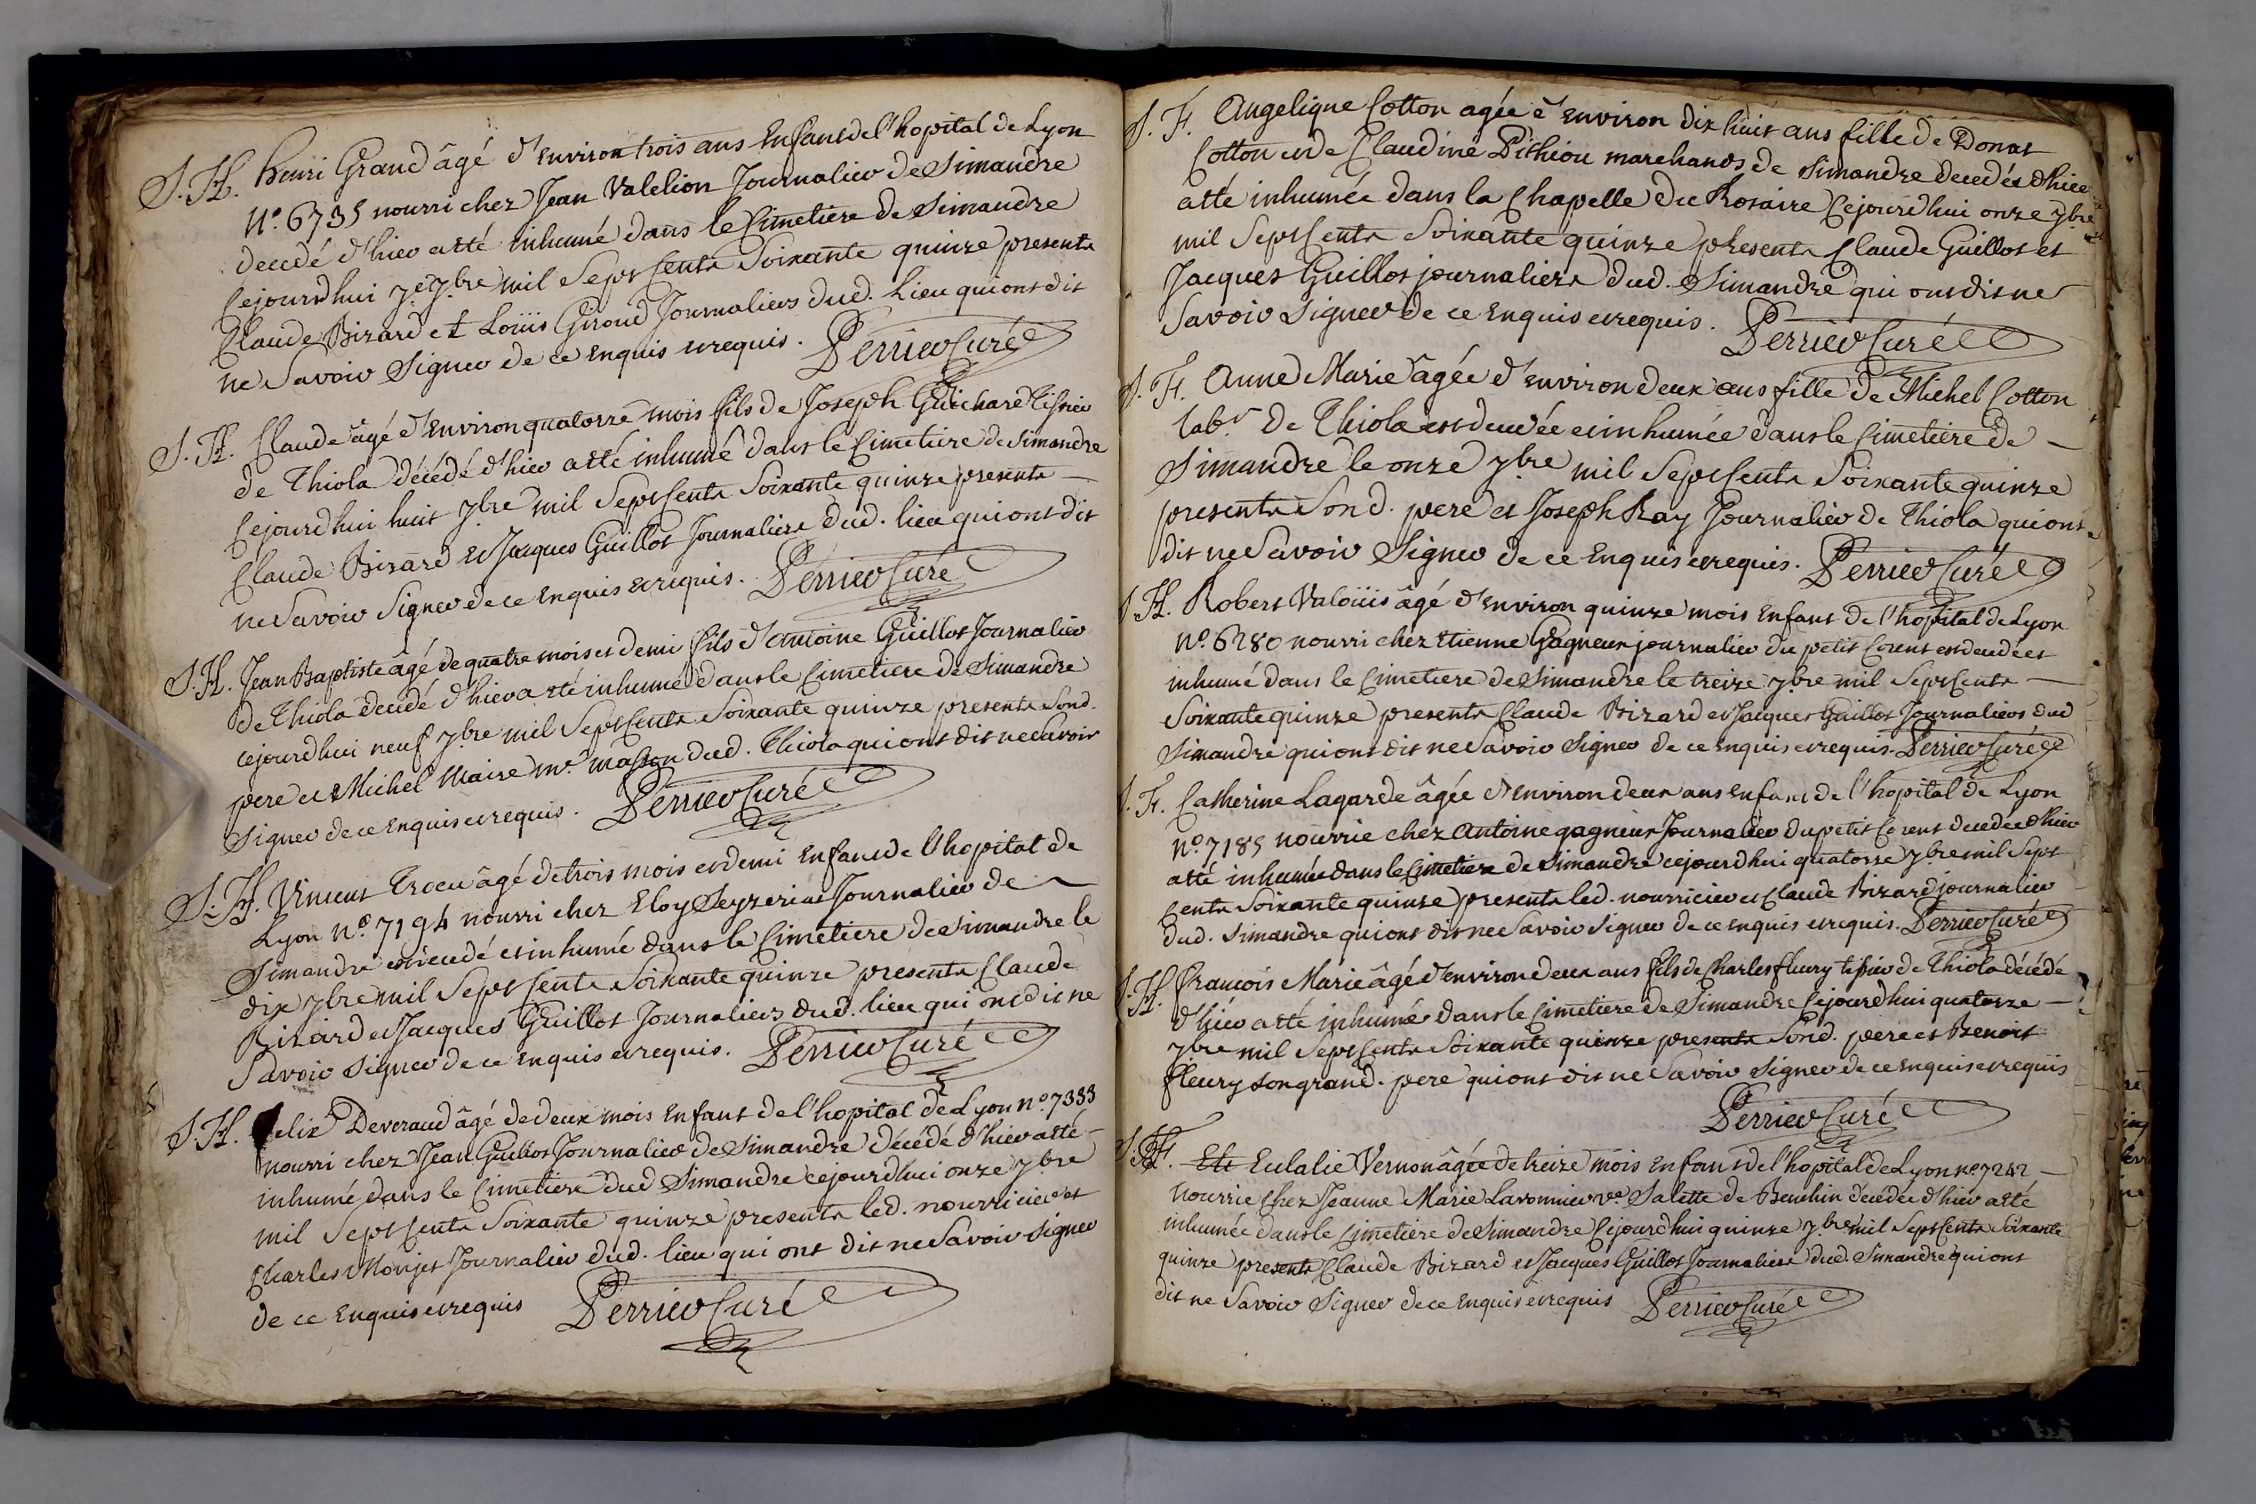 S. H. henri Grand âgé d'environ trois ans Enfant de l'hopital de Lyon
N.° 6735 nourri chez Jean Valelion Journalier de Simandre
decedé d'hier a été inhumé dans le Cimetiere de Simandre
Cejourdhui 7.e 7.bre mil Sept Cents Soixante quinze presents
Claude Bizard et Loüis Giroud Journaliers dud. Lieu qui ont dit
ne Savoir Signer de ce Enquis et requis. Perrier Curé
S. H. Claude âgé d'environ quatorze mois fils de Joseph Guichard tissier
de Thiola décédé d'hier a été inhumé dans le Cimetiere de Simandre
Cejourdhui huit 7bre mil Sept Cents Soixante quinze presents
Claude Bizard et Jacques Guillot Journaliers dud. lieu qui ont dit
ne Savoir Signer de ce Enquis et requis. Perrier Curé
S. H. Jean Baptiste âgé de quatre mois et demi fils d'antoine Guillot Journalier
de Thiola decedé d'hier a été inhumé dans le Cimetiere de Simandre
cejourdhui neuf 7bre mil Sept Cents Soixante quinze presents Sond.
pere et Michel Maire m.e masson dud. Thiola qui ont dit ne Savoir
Signer de ce Enquis et requis. Perrier Curé
S. H. Vincent Troeu âgé de trois mois et demi Enfant de l'hopital de
Lyon N.° 7194 nourri chez Eloy Seyzeriat Journalier de
Simandre est décedé et inhumé dans le Cimetiere de Simandre le
dix 7bre mil Sept Cents Soixante quinze presents Claude
Bizard et Jacques Guillot Journaliers dud. lieu qui ont dit ne
Savoir Signer de ce Enquis et requis. Perrier Curé
S. H. felix Deveraud âgé de deux mois Enfant de l'hopital de Lyon n.° 7333
nourri chez Jean Guillot Journalier de Simandre décédé d'hier a été
inhumé dans le Cimetiere dud Simandre cejourdhui onze 7bre
mil Sept Cents Soixante quinze presents led. nourricier et
Charles Monjet Journalier dud. lieu qui ont dit ne Savoir Signer
de ce Enquis et requis Perrier Curé
S. F. Angelique Cotton agée d'environ dix huit ans fille de Donat
Cotton et de Claudine Pithiou marchands de Simandre decedée d'hier
a été inhumée dans la Chapelle du Rosaire Cejourdhui onze 7bre
mil Sept Cents Soixante quinze presents Claude Guillot et
Jacques Guillot journaliers dud. Simandre qui ont dit ne
Savoir Signer de ce Enquis et requis. Perrier Curé
S. F. Anne Marie âgée d'environ deux ans fille de Michel Cotton
lab.r de Thiola est decedée et inhumée dans le Cimetiere de
Simandre le onze 7bre mil Sept Cents Soixante quinze
presents Sond. pere et Joseph Ray Journalier de Thiola qui ont
dit ne Savoir Signer de ce Enquis et requis. Perrier Curé
S. H. Robert Valoüis âgé d'environ quinze mois Enfant de l'hopital de Lyon
N.° 6280 nourri chez Etienne Gagneur journalier du petit Corent est decedé et
inhumé dans le Cimetiere de Simandre le treize 7bre mil Sept Cents
Soixante quinze presents Claude Bizard et Jacques Guillot Journaliers dud
Simandre qui ont dit ne Savoir Signer de ce enquis et requis. Perrier Curé
S. F. Catherine Lagarde âgée d'environ deux ans enfant de l'hopital de Lyon
N.° 7185 nourrie chez Antoine gagneur Journalier du petit Corent decedée d'hier
a été inhumée dans le Cimetiere de Simandre cejourdhui quatorze 7bre mil Sept
Cents Soixante quinze presents led. nourricier et Claude Bizard journalier
dud. Simandre qui ont dit ne Savoir Signer de ce enquis et requis. Perrier Curé
S. H. François Marie âgé d'environ deux ans fils de Charles fleury tissier de Thiola décédé
d'hier a été inhumé dans le Cimetiere de Simandre Cejourdhui quatorze
7bre mil Sept Cents Soixante quinze presents Sond. pere et Benoit
fleury son grand. pere qui ont dit ne Savoir Signer de ce enquis et requis
Perrier Curé
S. F. Ele Eulalie Vernon âgée de treize mois Enfant de l'hopital de Lyon n.° 7242
nourrie Chez Jeanne Marie Lavonnier v.e Salette de Beuchin décédée d'hier a été
inhumée dans le Cimetiere de Simandre Cejourdhui quinze 7.bre mil Sept Cents Soixante
quinze presents Claude Bizard et Jacques Guillot Journaliers dud. Simandre qui ont
dit ne Savoir Signer de ce Enquis et requis Perrier Curé